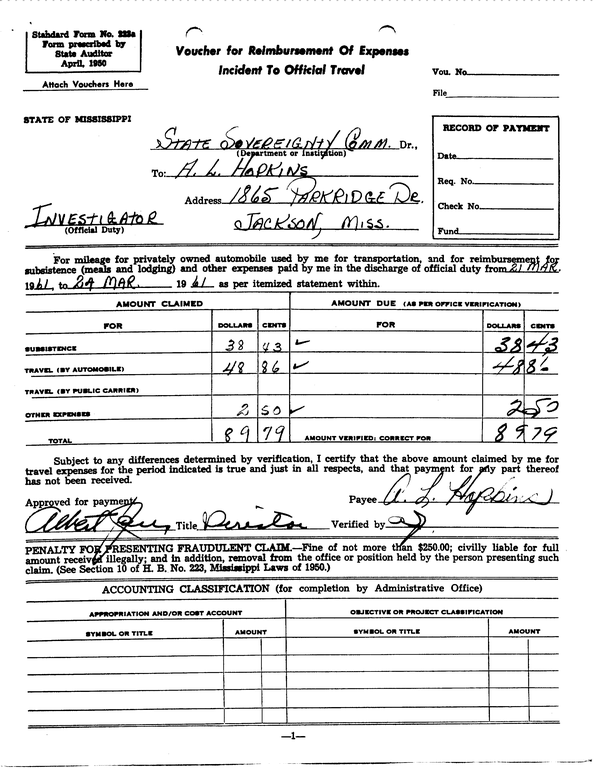 Standard Form No. 223a
Form prescribed by
State Auditor
April, 1950
Attach Vouchers Here
Voucher for Reimbursement Of Expenses
Incident To Official Travel
Vou. No.
File
STATE OF MISSISSIPPI
STATE SOVEREIGNTY COMM. Dr.,
(Department or Institution)
To: A. L. HOPKINS
Address 1865 PARKRIDGE DR.
JACKSON, MISS.
INVESTIGATOR
(Official Duty)
RECORD OF PAYMENT
Date
Req. No.
Check No.
Fund
For mileage for privately owned automobile used by me for transportation, and for reimbursement for
subsistence (meals and lodging) and other expenses paid by me in the discharge of official duty from 21 MAR.
1961, to 24 MAR. 1961 as per itemized statement within.
AMOUNT CLAIMED AMOUNT DUE (AS PER OFFICE VERIFICATION)
FOR DOLLARS CENTS FOR DOLLARS CENTS
SUBSISTENCE 38 43 ✓ 38 43
TRAVEL (BY AUTOMOBILE) 48 86 ✓ 48 86
TRAVEL (BY PUBLIC CARRIER)
OTHER EXPENSES 2 50 ✓ 2 50
TOTAL 89 79 AMOUNT VERIFIED: CORRECT FOR 89 79
Subject to any differences determined by verification, I certify that the above amount claimed by me for
travel expenses for the period indicated is true and just in all respects, and that payment for any part thereof
has not been received.
Payee A. L. Hopkins
Approved for payment
Albert Jones Title Director Verified by
PENALTY FOR PRESENTING FRAUDULENT CLAIM.—Fine of not more than $250.00; civilly liable for full
amount received illegally; and in addition, removal from the office or position held by the person presenting such
claim. (See Section 10 of H. B. No. 223, Mississippi Laws of 1950.)
ACCOUNTING CLASSIFICATION (for completion by Administrative Office)
APPROPRIATION AND/OR COST ACCOUNT OBJECTIVE OR PROJECT CLASSIFICATION
SYMBOL OR TITLE AMOUNT SYMBOL OR TITLE AMOUNT
—1—